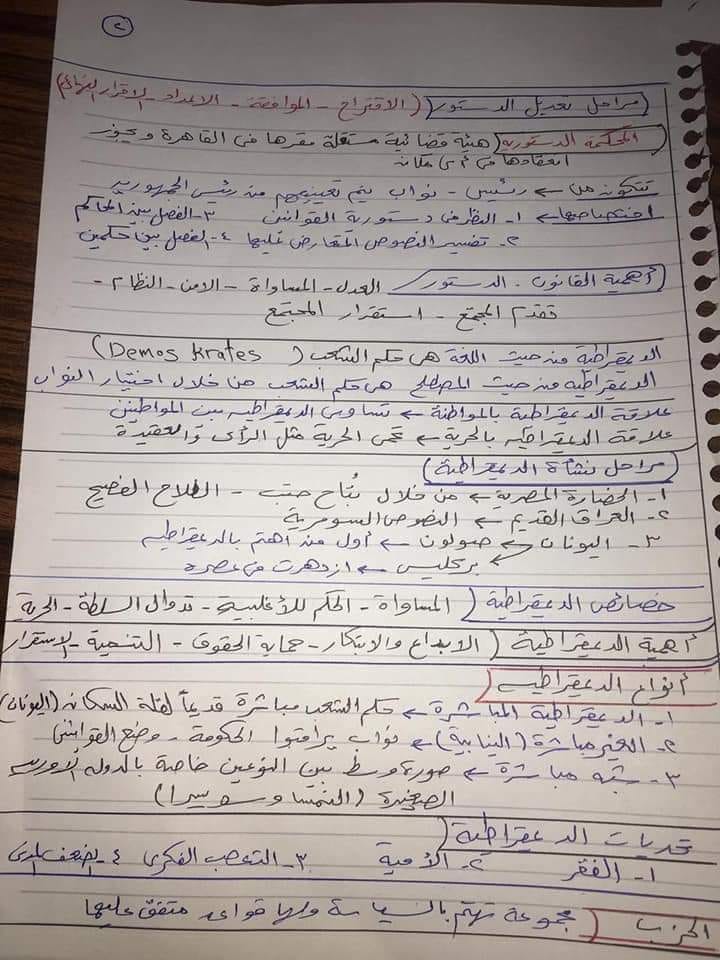 ٢
مراحل تعديل الدستور (الاقتراح - الموافقة - الاعداد - الاقرار النهائى)
المحكمة الدستورية (هيئة قضائية مستقلة مقرها فى القاهرة ويجوز
انعقادها فى أى مكان
تتكون من ← رئيس - نواب يتم تعيينهم من رئيس الجمهورية
اختصاصها ← ١- النظر فى دستورية القوانين ٣- الفصل بين المحاكم
٢- تفسير النصوص المتعارض عليها ٤- الفصل بين حكمين
أهمية القانون - الدستور العدل - المساواة - الامن - النظام -
تقدم المجتمع - استقرار المجتمع
الديمقراطية من حيث اللغة هى حكم الشعب (Demos Krates)
الديمقراطية من حيث المصطلح هى حكم الشعب من خلال اختيار النواب
علاقة الديمقراطية بالمواطنة ← تساوى الديمقراطية بين المواطنين
علاقة الديمقراطية بالحرية ← تحمى الحرية مثل الرأى والعقيدة
مراحل نشأة الديمقراطية)
١- الحضارة المصرية ← من خلال بتاح حتب - الفلاح الفصيح
٢- العراق القديم ← النصوص السومرية
٣- اليونان ← صولون ← أول من أهتم بالديمقراطية
بركليس ← ازدهرت فى عصره
خصائص الديمقراطية (المساواة - الحكم للأغلبية - تدوال السلطة - الحرية
أهمية الديمقراطية (الابداع والابتكار - حماية الحقوق - التنمية - الاستقرار
أنواع الديمقراطية
١- الديمقراطية المباشرة ← حكم الشعب مباشرة قديماً لقلة السكان (اليونان)
٢- الغير مباشرة (النيابية) ← نواب يراقبوا الحكومة - وضع القوانين
٣- شبه مباشرة ← صورة وسط بين النوعين خاصة بالدول الاوربية
الصغيرة (النمسا وسويسرا)
تحديات الديمقراطية (
١- الفقر ٢- الأمية ٣- التعصب الفكرى ٤- الضعف
الحزب (مجموعة تهتم بالسياسة ولها قواعد متفق عليها